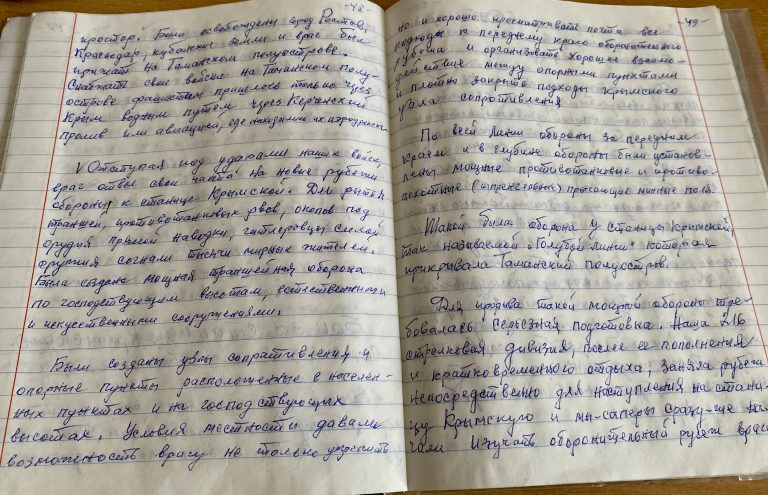 -48-
простор. Были освобождены город Ростов,
Краснодар, кубанские земли и враг был
прижат на Таманском полуострове.
Снабжать свои войска на Таманском полу-
острове фашистам пришлось только через
Крым водным путем через Керченский
пролив или авиацией, где находились их аэродромы.
Отступая под ударами наших войск,
враг отвел свои части на новые рубежи
обороны к станице Крымской. Для рытья
траншей, противотанковых рвов, окопов под
орудия прямой наводки, гитлеровцы силой
оружия согнали тысячи мирных жителей.
Была создана мощная траншейная оборона
по господствующим высотам, естественными
и искусственными сооружениями.
Были созданы узлы сопротивления и
опорные пункты расположенные в населен-
ных пунктах и на господствующих
высотах. Условия местности давали
возможность врагу не только удержать
-49-
но и хорошо просматривать почти все
подходы к переднему краю оборонительного
рубежа и организовать хорошее взаимо-
действие между опорными пунктами
и плотно закрыть подходы Крымского
узла сопротивления
По всей линии обороны за передним
краем и в глубине обороны были установ-
лены мощные противотанковые и противо-
пехотные прыгающие минные поля.
Такой была оборона у станицы Крымской,
так называемой "Голубой линии" которая
прикрывала Таманский полуостров.
Для прорыва такой мощной обороны тре-
бовалась серьезная подготовка. Наша 216
стрелковая дивизия, после ее пополнения
и кратковременного отдыха, заняла рубежи
непосредственно для наступления на стани-
цу Крымскую и мы-саперы сразу-же на-
чали изучать оборонительный рубеж врага